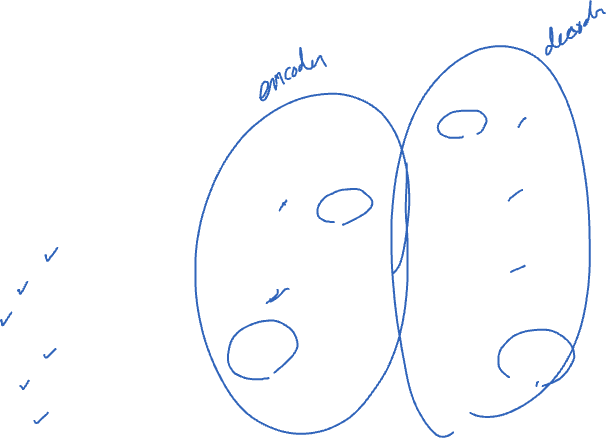 encoder
decoder